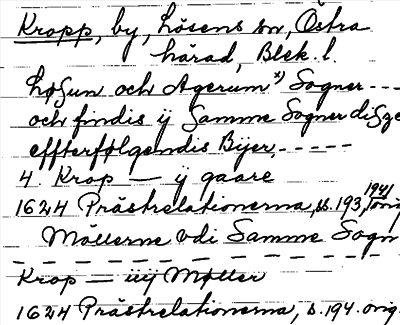 Kropp, by, Lösens sn, Östra
härad, Blek. l.
Løsun och Agerum *) Sogner ---
och findis ij Samme Sogner disse
effterfølgendis Bijer, -----
4. Krop — ij gaare
1624 Prästrelationerna, s. 193, 194,
Möllerne vdi Samme Sogn
Krop — iiij Møller
1624 Prästrelationerna, s. 194. orig.